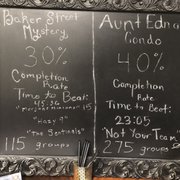 Baker Street
Mystery
30%
Completion
Rate
Time to Beat:
45:36
"Hazy 9"
"The Sentinels"
115 groups
Aunt Edna
Condo
40%
Completion
Rate
Time to Beat:
23:05
"Not Your Team"
275 groups